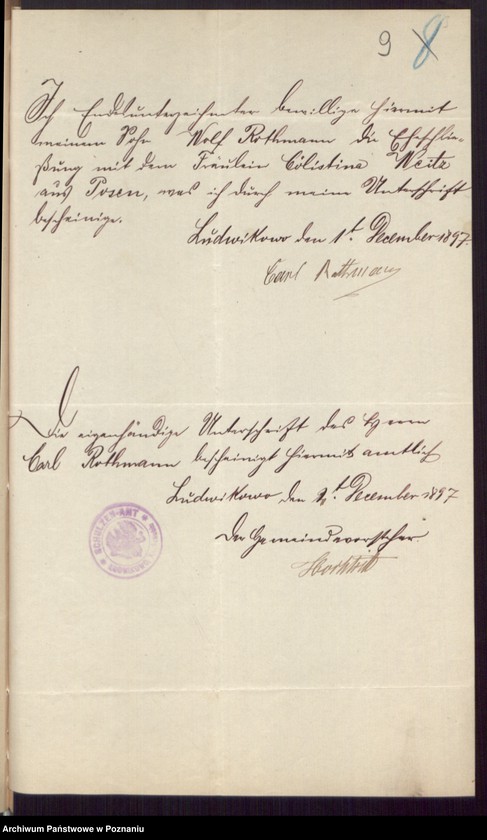 9 8
Ich Endesunterzeichneter bewillige hiermit
meinem Sohn Wolf Rothmann die Eheschlie-
ßung mit dem Fräulein Cölistina Weitz
aus Posen, was ich durch meine Unterschrift
bescheinige.
Ludwikowo den 1t. December 1897.
Carl Rothmann
Die eigenhändige Unterschrift des Herrn
Carl Rothmann bescheinigt hiermit amtlich
Ludwikowo den 2t. December 1897
Der Gemeindevorsteher
SCHULZEN-AMT
Archiwum Państwowe w Poznaniu